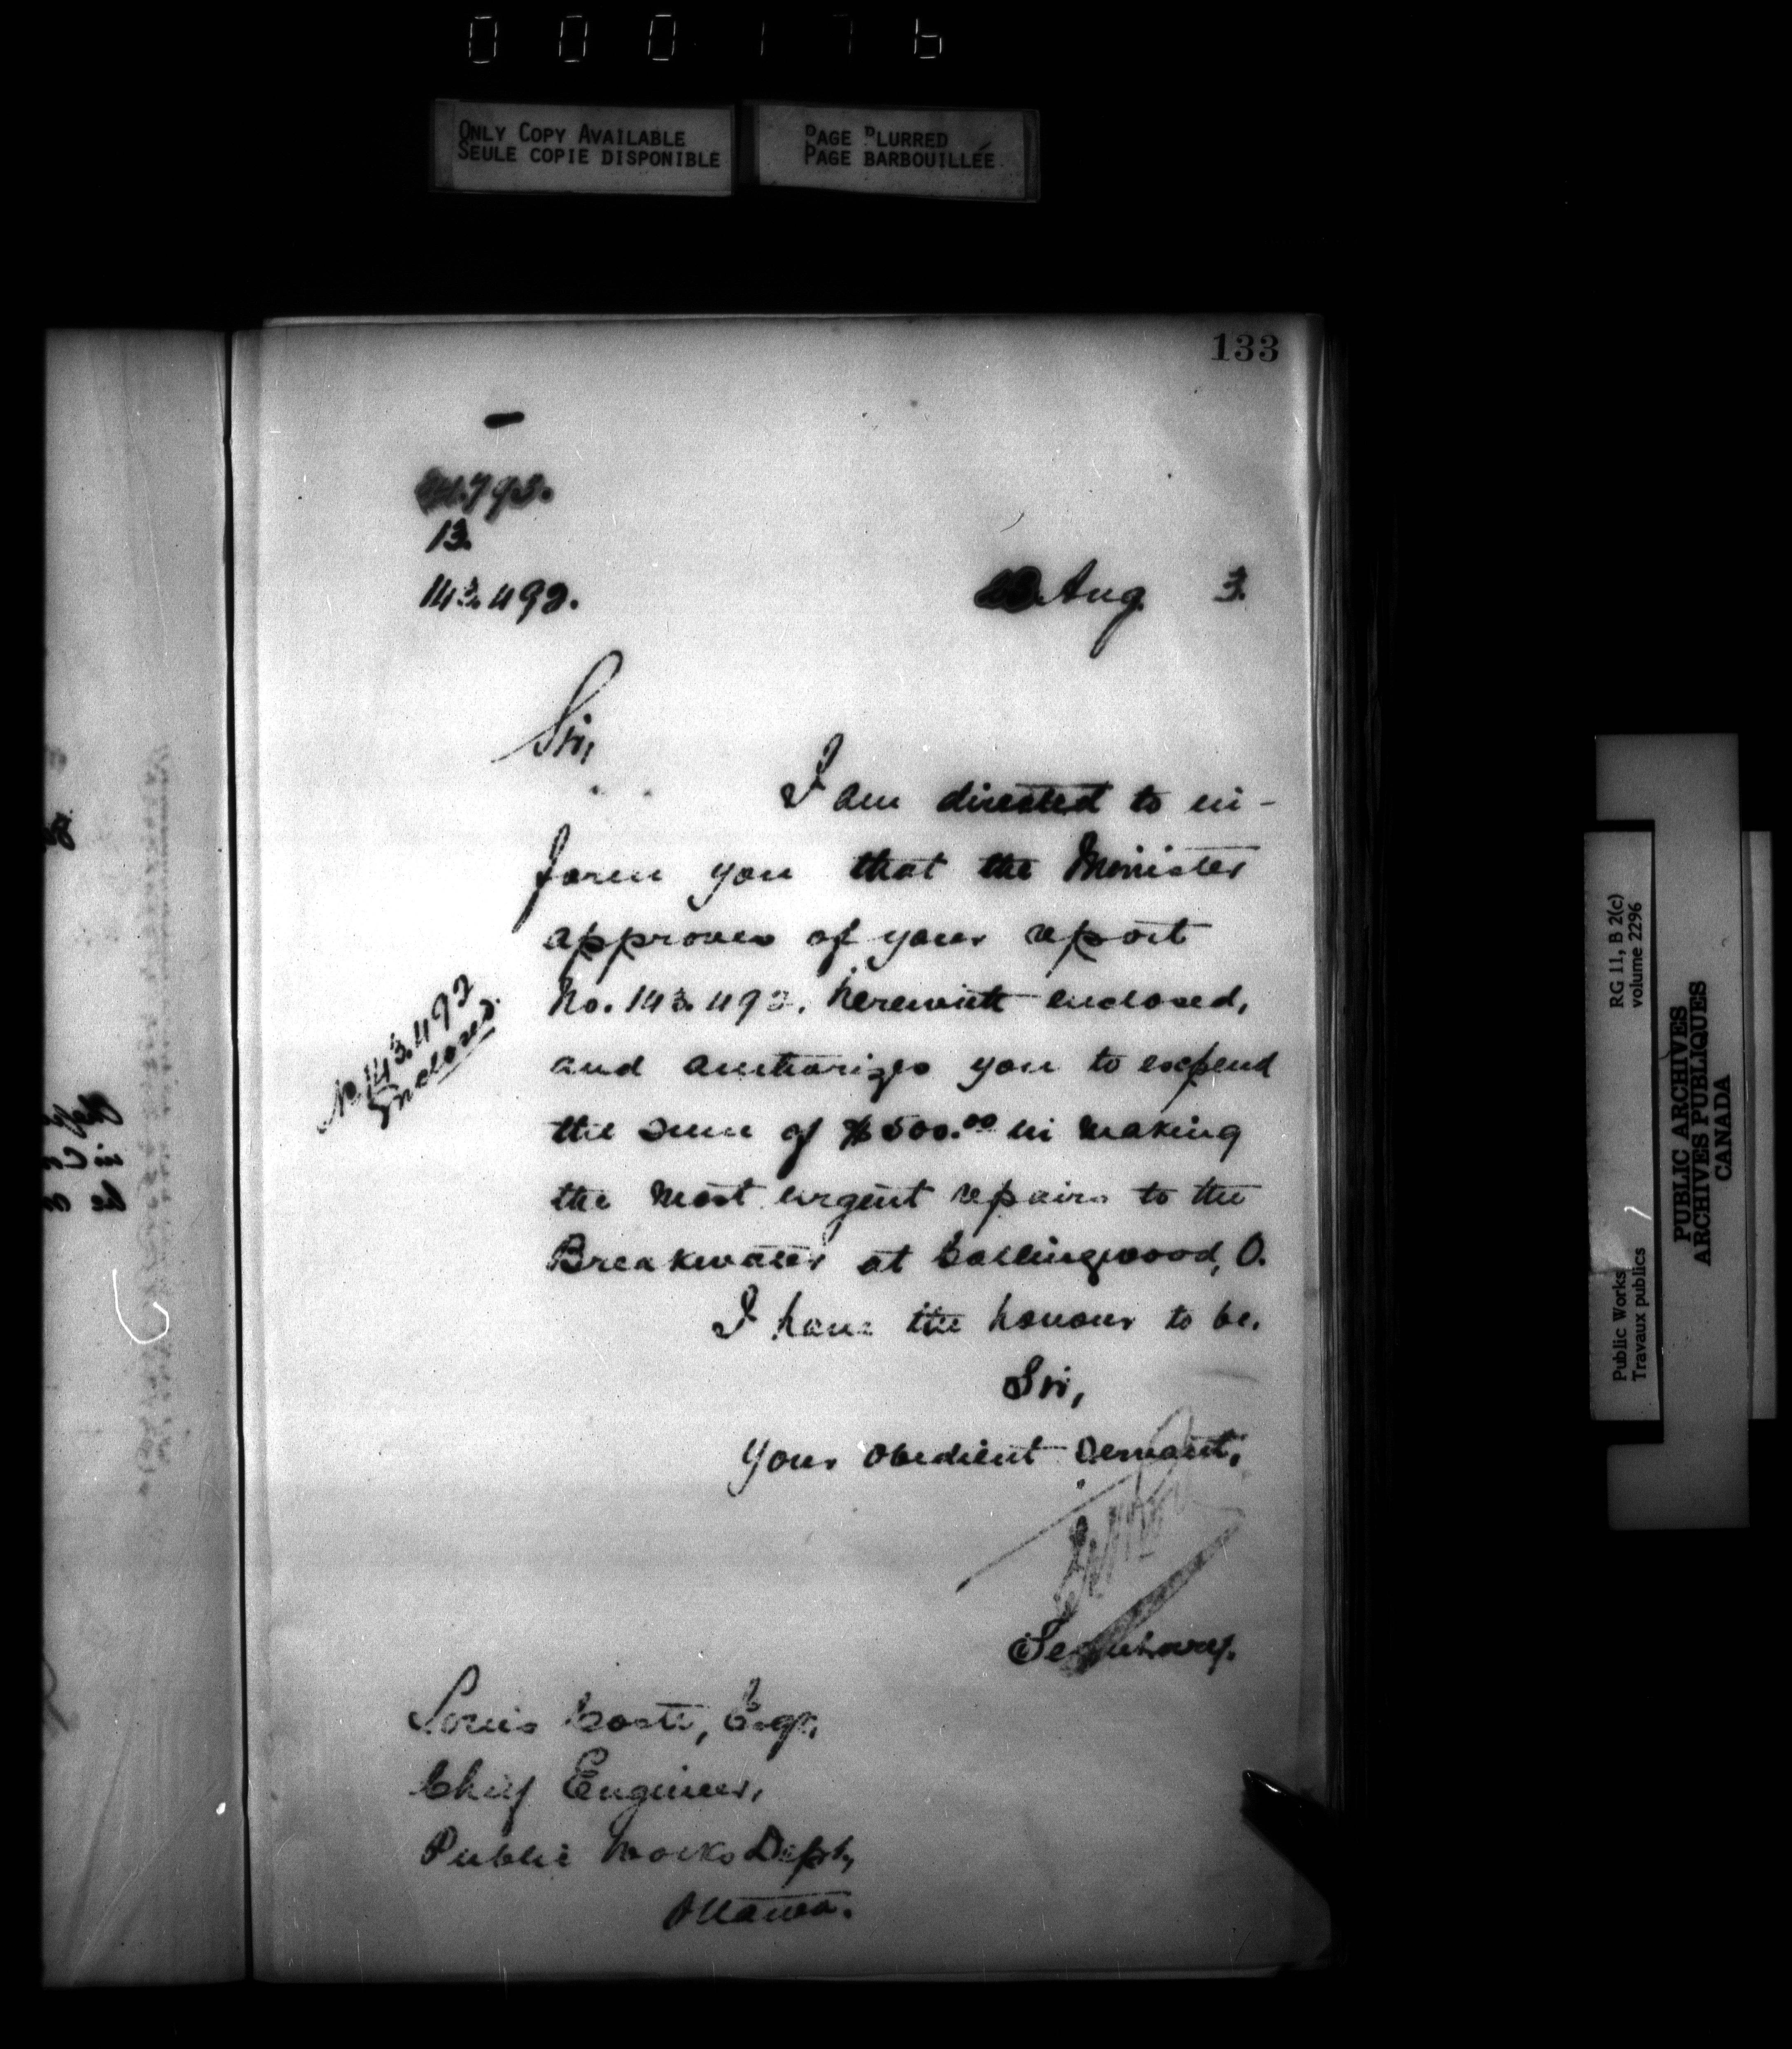 000176
ONLY COPY AVAILABLE
SEULE COPIE DISPONIBLE
PAGE BLURRED
PAGE BARBOUILLÉE
133
13.
143.492.
Aug. 3.
Sir,
I am directed to in-
form you that the Minister
approves of your report
No. 143.492, herewith enclosed,
and authorizes you to expend
the sum of $500.00 in making
the most urgent repairs to the
Breakwater at Collingwood, O.
I have the honour to be,
Sir,
Your obedient servant,
Secretary.
No. 143.492
Enclosed.
Louis Coste, Esqr,
Chief Engineer,
Public Works Dept,
Ottawa.
RG 11, B 2(c)
volume 2296
Public Works
Travaux publics
PUBLIC ARCHIVES
ARCHIVES PUBLIQUES
CANADA